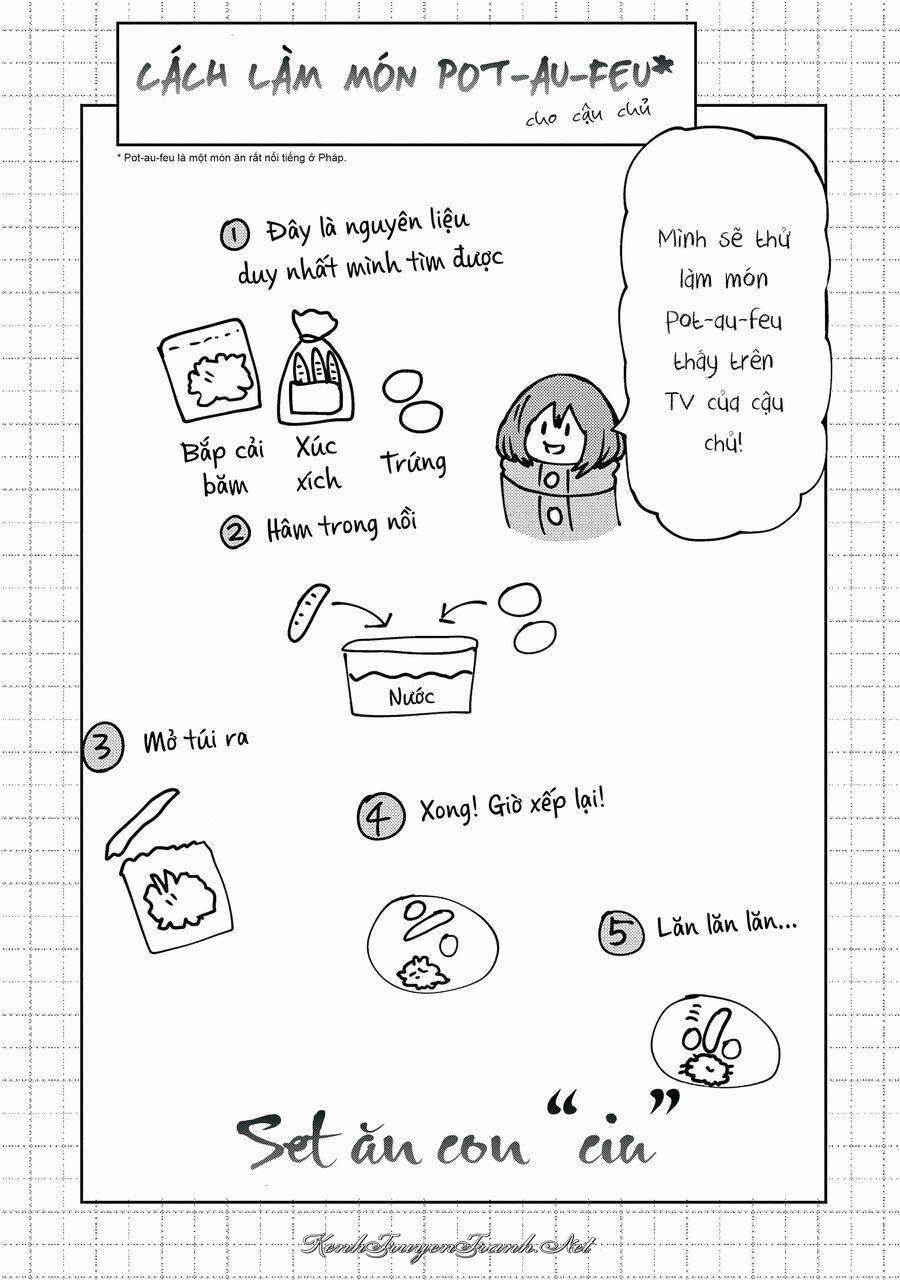 CÁCH LÀM MÓN POT-AU-FEU*
cho cậu chủ
* Pot-au-feu là một món ăn rất nổi tiếng ở Pháp.
Mình sẽ thử
làm món
Pot-au-feu
thấy trên
TV của cậu
chủ!
1 Đây là nguyên liệu
duy nhất mình tìm được
Bắp cải
băm
Xúc
xích
Trứng
2 Hâm trong nồi
Nước
3 Mở túi ra
4 Xong! Giờ xếp lại!
5 Lăn lăn lăn...
Set ăn con “ciu”
KenhTruyenTranh.Net